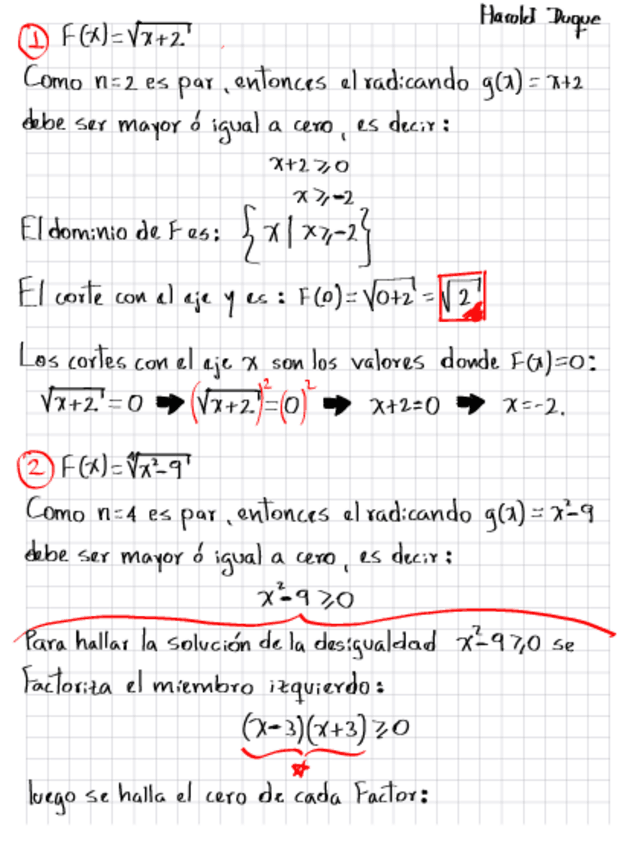 Harold Duque
1 F(x)=√x+2
Como n=2 es par, entonces el radicando g(x)=x+2
debe ser mayor ó igual a cero, es decir:
x+2≥0
x≥-2
El dominio de F es: {x|x≥-2}
El corte con el eje y es: F(0)=√0+2=√2
Los cortes con el eje x son los valores donde F(x)=0:
√x+2=0 ➡ (√x+2)²=(0)² ➡ x+2=0 ➡ x=-2.
2 F(x)=∜x²-9
Como n=4 es par, entonces el radicando g(x)=x²-9
debe ser mayor ó igual a cero, es decir:
x²-9≥0
Para hallar la solución de la desigualdad x²-9≥0 se
Factoriza el miembro izquierdo:
(x-3)(x+3)≥0
luego se halla el cero de cada Factor: